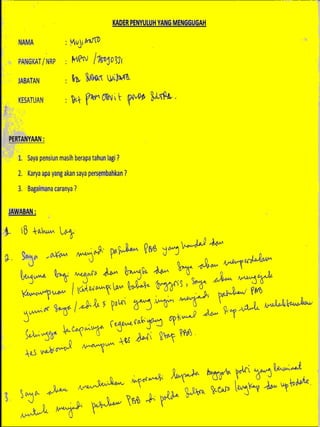 KADER PENYULUH YANG MENGGUGAH
NAMA : MUJIANTO
PANGKAT / NRP :
JABATAN : BA
KESATUAN : Dit PAM OBVIT POLDA SULTRA.
PERTANYAAN :
1. Saya pensiun masih berapa tahun lagi ?
2. Karya apa yang akan saya persembahkan ?
3. Bagaimana caranya ?
JAWABAN :
1. 18 tahun Lagi
2. Saya akan menjadi pasukan PBB yang handal dan
berguna bagi negara dan bangsa dan Saya akan memperdalam
kemampuan / keterampilan bahasa Inggris, Saya akan mengajak
yunior Saya / adik2 polri yang ingin menjadi pasukan PBB
Sehingga tercapainya regenerasi yang optimal dan Siap untuk melaksanakan
tes nasional maupun tes dari Staf PBB.
3. Saya akan memberikan informasi kepada anggota polri yang berminat
untuk menjadi pasukan PBB di polda Sultra Secara lengkap dan uptodate.